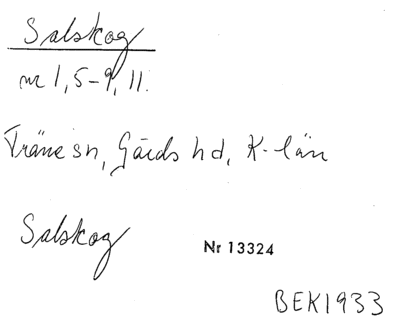 Salskog
nr 1, 5-9, 11.
Träne sn, Gärds hd, K-län
Salskog
Nr 13324
BEK1933